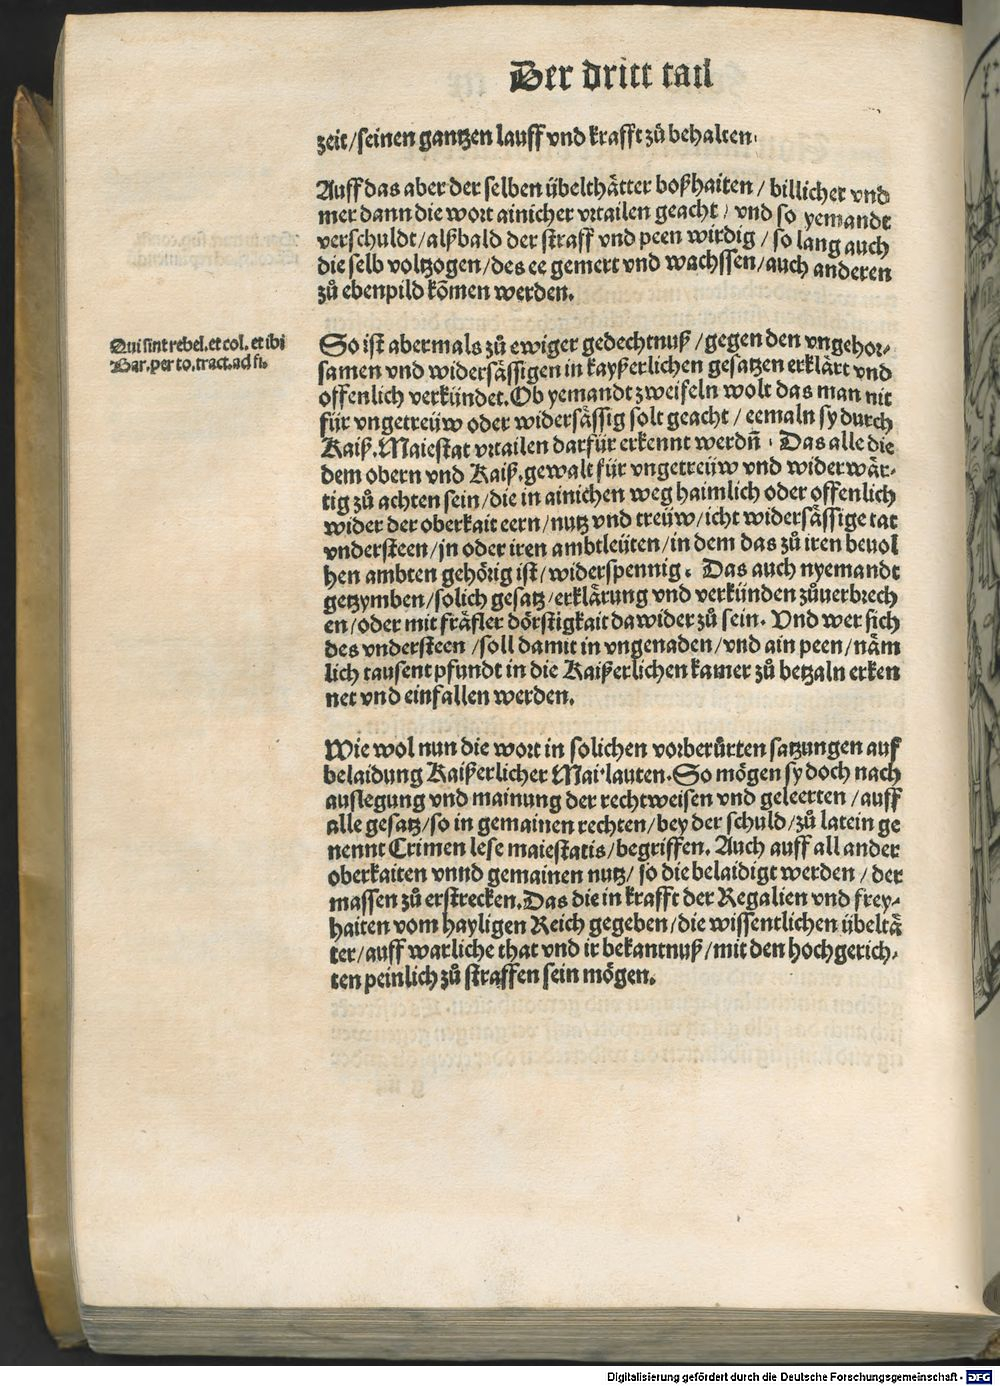 Der dritt tail
zeit/seinen gantzen lauff vnd krafft zů behalten.
Auff das aber der selben übelthätter boßhaiten / billicher vnd
mer dann die wort ainicher vrtailen geacht / vnd so yemandt
verschuldt/alßbald der straff vnd peen wirdig / so lang auch
die selb voltzogen/des ee gemert vnd wachssen/auch anderen
zů ebenpild kõmen werden.
Qui sint rebel. et col. et ibi
Bar. per to. tract. ad fi.
So ist abermals zů ewiger gedechtnuß/gegen den vngehor-
samen vnd widersässigen in kayßerlichen gesatzen erklärt vnd
offenlich verkündet. Ob yemandt zweifeln wolt das man nit
für vngetreüw oder widersässig solt geacht / eemaln sy durch
Kaiß. Maiestat vrtailen darfür erkennt werdñ. Das alle die
dem obern vnd Kaiß. gewalt für vngetreüw vnd widerwär-
tig zů achten sein/die in ainichen weg haimlich oder offenlich
wider der oberkait eern/nutz vnd treüw/icht widersässige tat
vndersteen/jn oder iren ambtleüten/in dem das zů iren beuol
hen ambten gehörig ist/widerspennig. Das auch nyemandt
getzymben/solich gesatz/erklärung vnd verkünden zůuerbrech
en/oder mit fräfler dörstigkait dawider zů sein. Vnd wer sich
des vndersteen /soll damit in vngenaden/vnd ain peen/näm
lich tausent pfundt in die Kaißerlichen kamer zů betzaln erken
net vnd einfallen werden.
Wie wol nun die wort in solichen vorberůrten satzungen auf
belaidung Kaißerlicher Mai' lauten. So mögen sy doch nach
auslegung vnd mainung der rechtweisen vnd geleerten /auff
alle gesatz/so in gemainen rechten/bey der schuld/zů latein ge
nennt Crimen lese maiestatis/begriffen. Auch auff all ander
oberkaiten vnnd gemainen nutz/ so die belaidigt werden / der
massen zů erstrecken. Das die in krafft der Regalien vnd frey-
haiten vom hayligen Reich gegeben/die wissentlichen übeltä
ter/auff warliche that vnd ir bekantnuß/mit den hochgerich-
ten peinlich zů straffen sein mögen.
Digitalisierung gefördert durch die Deutsche Forschungsgemeinschaft - DFG